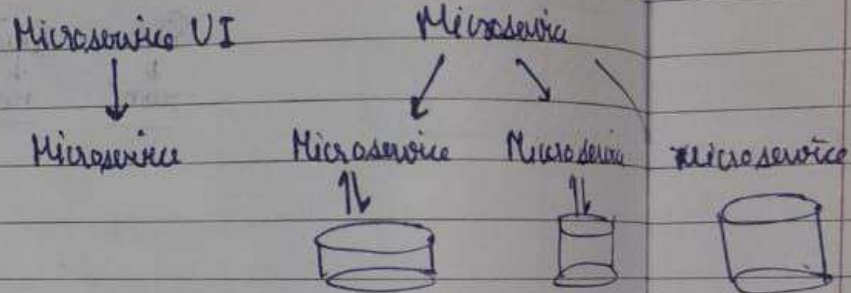 Microservice UI Microservice
Microservice Microservice Microservice Microservice